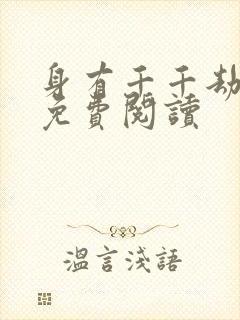 身有千千劫
免費閱讀
溫言淺語